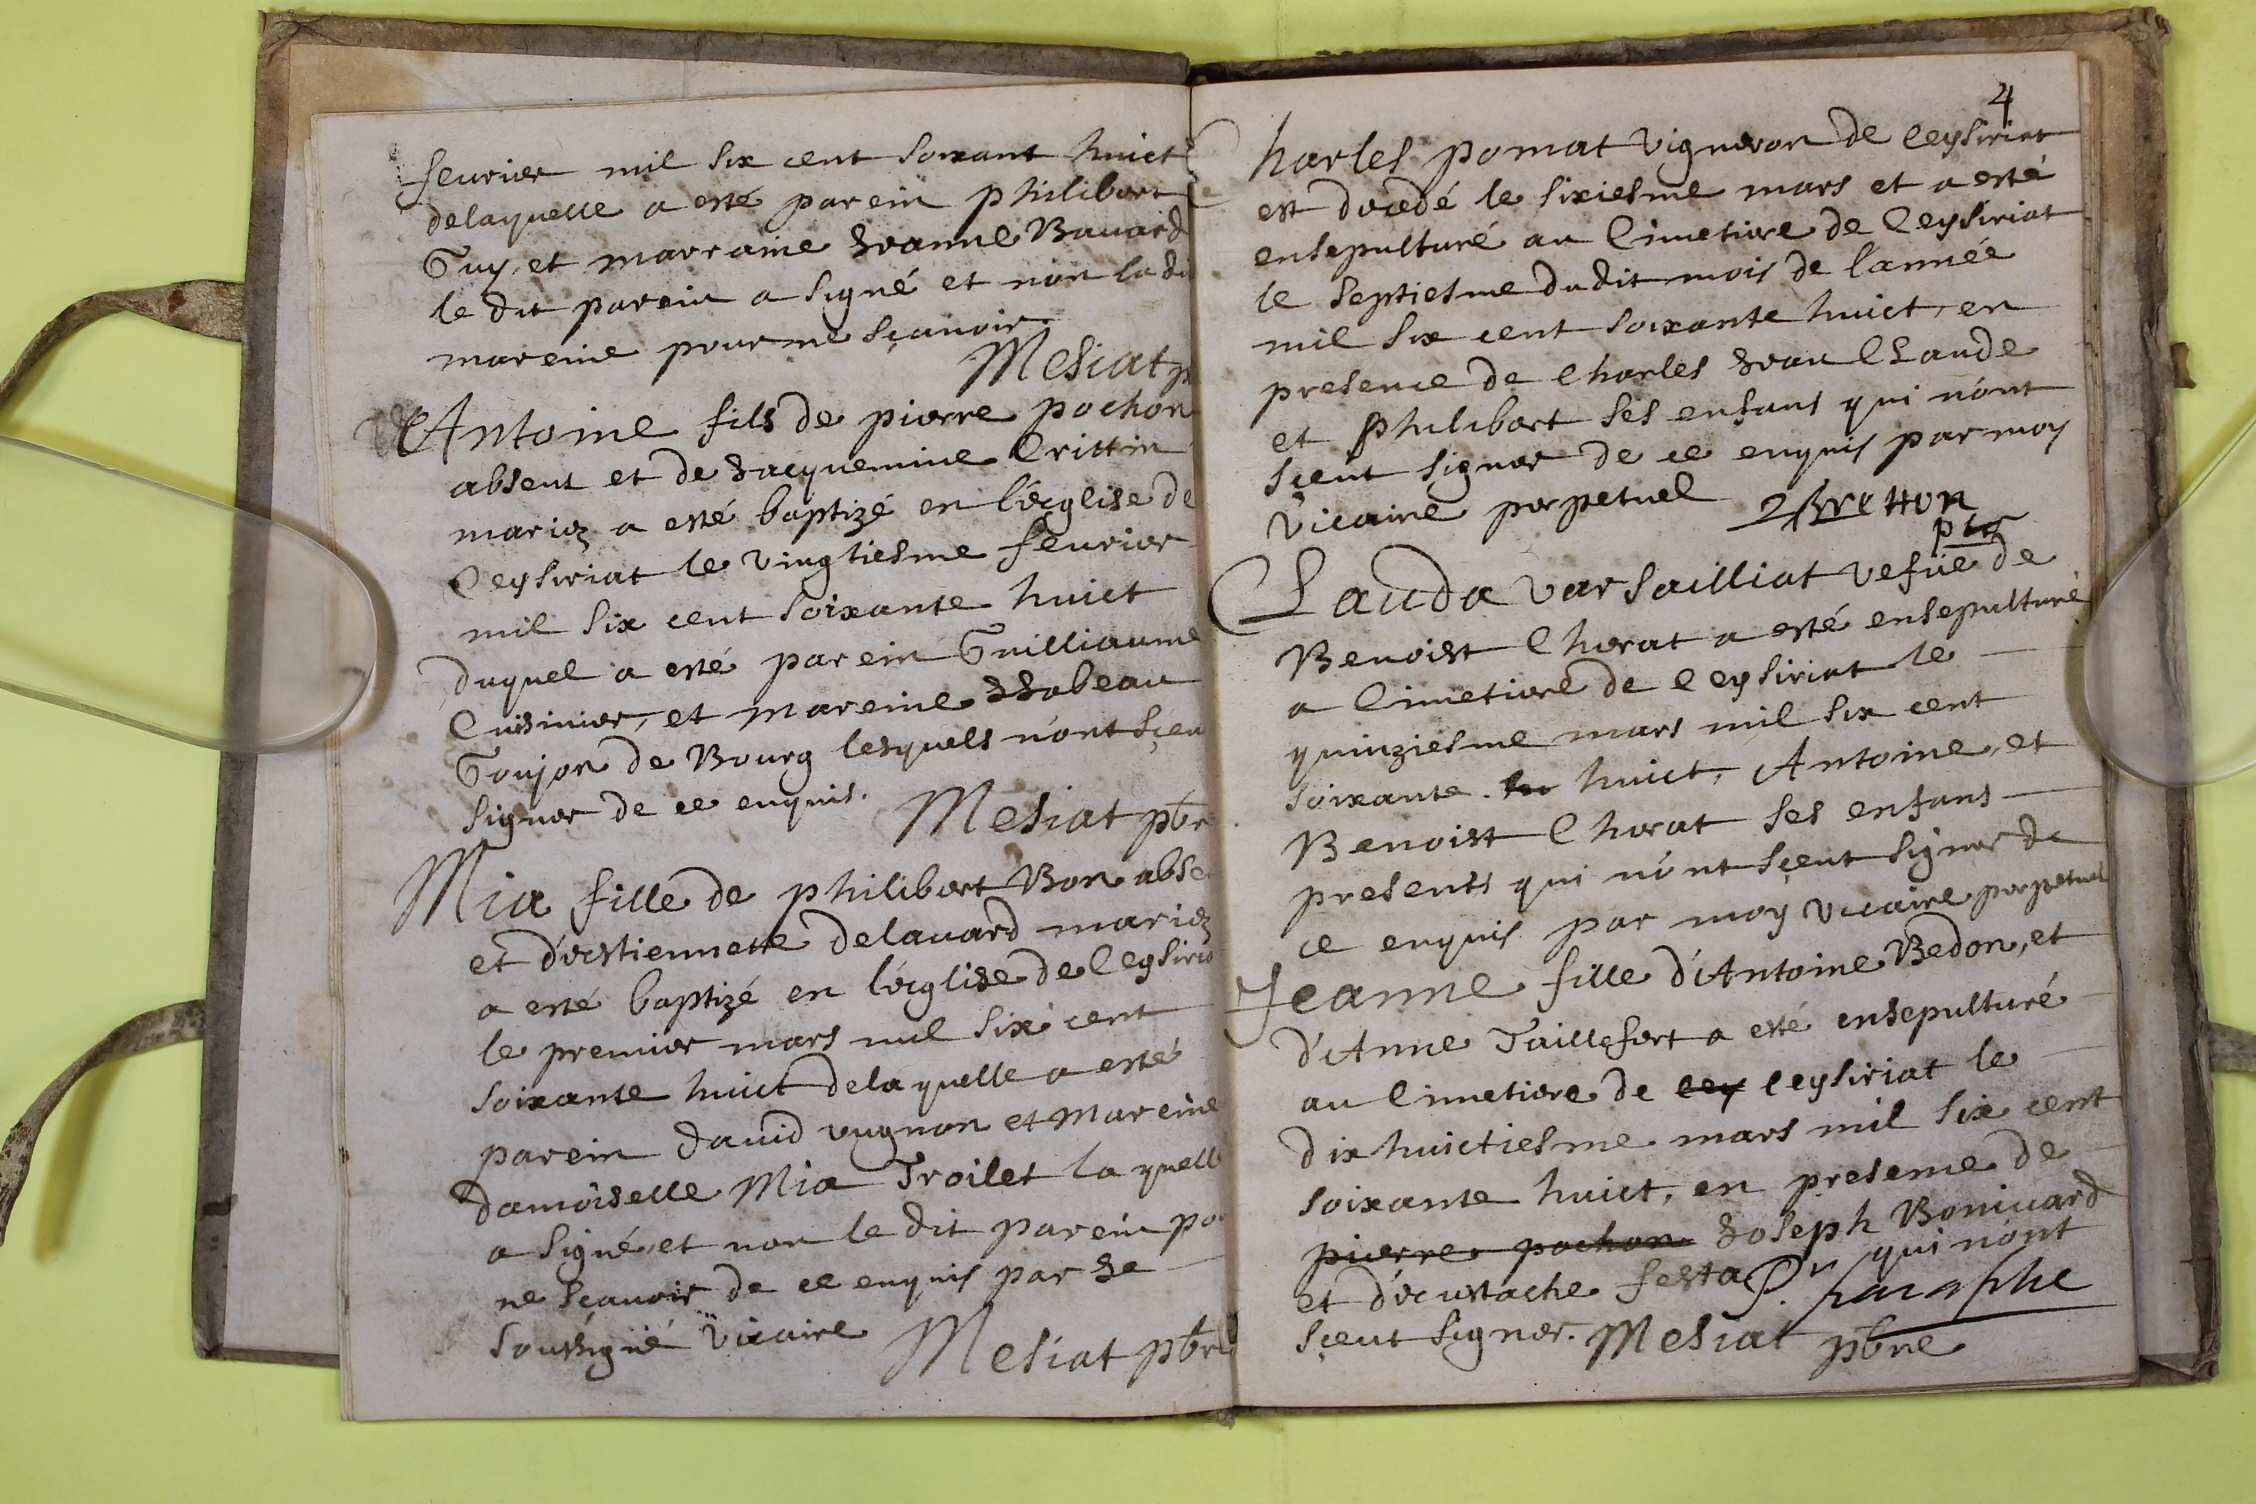 feurier mil six cent soixant huict
delaquelle a esté parein philibert
Guy, et marraine Jeanne Bauard
le dit parein a signé et non ladi
mareine pour ne sçauoir.
Mesiat p
Antoine fils de pierre pochon
absent et de Jacquemine Crittin
mariez a esté baptizé en l'ecglise de
Ceysiriat le vingtiesme feurier
mil six cent soixante huict
duquel a esté parein Guilliaume
Cuisinier, et mareine Isabeau
Goujon de Bourg lesquels n'ont sçeu
signer de ce enquis.
Mesiat pbr
Mia fille de philibert Bon abse
et d'estiennette delauard mariez
a esté baptizé en l'ecglise de Ceysiria
le premier mars mil six cent
soixante huict delaquelle a esté
parein dauid vugnon et mareine
damoiselle Mia Troilet laquelle
a signé, et non le dit parein po
ne sçauoir de ce enquis par Je
soussigné vicaire
Mesiat pbre
4
harles pomat vigneron de Ceysiriat
est decedé le sixiesme mars et a esté
ensepulturé au Cimetiere de Ceysiriat
le septiesme dudit mois de l'année
mil six cent soixante huict, en
presence de Charles Jean Claude
et philibert ses enfans qui n'ont
sçeut signer de ce enquis par moy
vicaire perpetuel
Clauda varsailliat vefue de
Benoist Cherat a esté ensepulturé
a Cimetiere de Ceysiriat le
quinziesme mars mil six cent
soixante huict, Antoine, et
Benoist Cherat ses enfans
presents qui n'ont sçeut signer de
ce enquis par moy vicaire perpetuel
Jeanne fille d'Antoine Bedon, et
d'Anne Taillefert a esté ensepulturé
au Cimetiere de cey Ceysiriat le
dixhuictiesme mars mil six cent
soixante huict, en presence de
pierre pochon Joseph Boniuard
et d'eustache festa qui n'ont
sçeut signer. Mesiat pbre